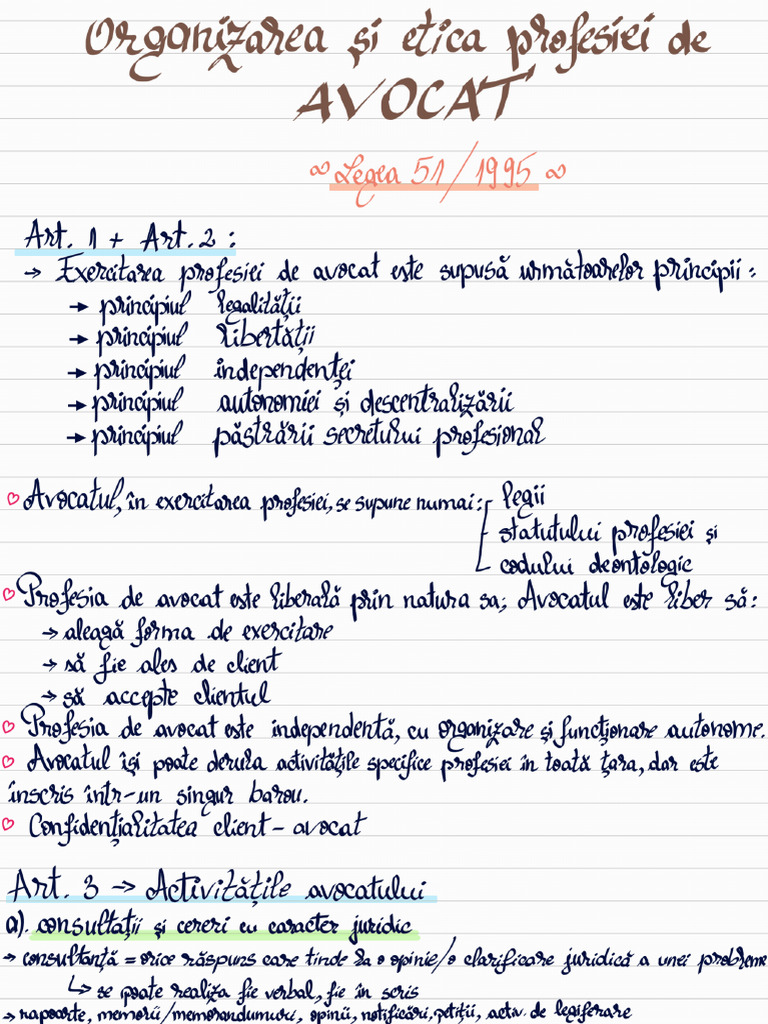 Organizarea și etica profesiei de
AVOCAT
∞ Legea 51/1995 ∞
Art. 1 + Art. 2 :
→ Exercitarea profesiei de avocat este supusă următoarelor principii :
→ principiul legalității
→ principiul libertății
→ principiul independenței
→ principiul autonomiei și descentralizării
→ principiul păstrării secretului profesional
♡ Avocatul, în exercitarea profesiei, se supune numai : legii
statutului profesiei și
codului deontologic
♡ Profesia de avocat este liberală prin natura sa; Avocatul este liber să :
→ aleagă forma de exercitare
→ să fie ales de client
→ să accepte clientul
♡ Profesia de avocat este independentă, cu organizare și funcționare autonome.
♡ Avocatul își poate derula activitățile specifice profesiei în toată țara, dar este
înscris într-un singur barou.
♡ Confidențialitatea client - avocat
Art. 3 → Activitățile avocatului
a). consultații și cereri cu caracter juridic
→ consultanță = orice răspuns care tinde la o opinie/o clarificare juridică a unei probleme
↳ se poate realiza fie verbal, fie în scris
→ rapoarte, memorii/memorandumuri, opinii, notificări, petiții, activ. de legiferare